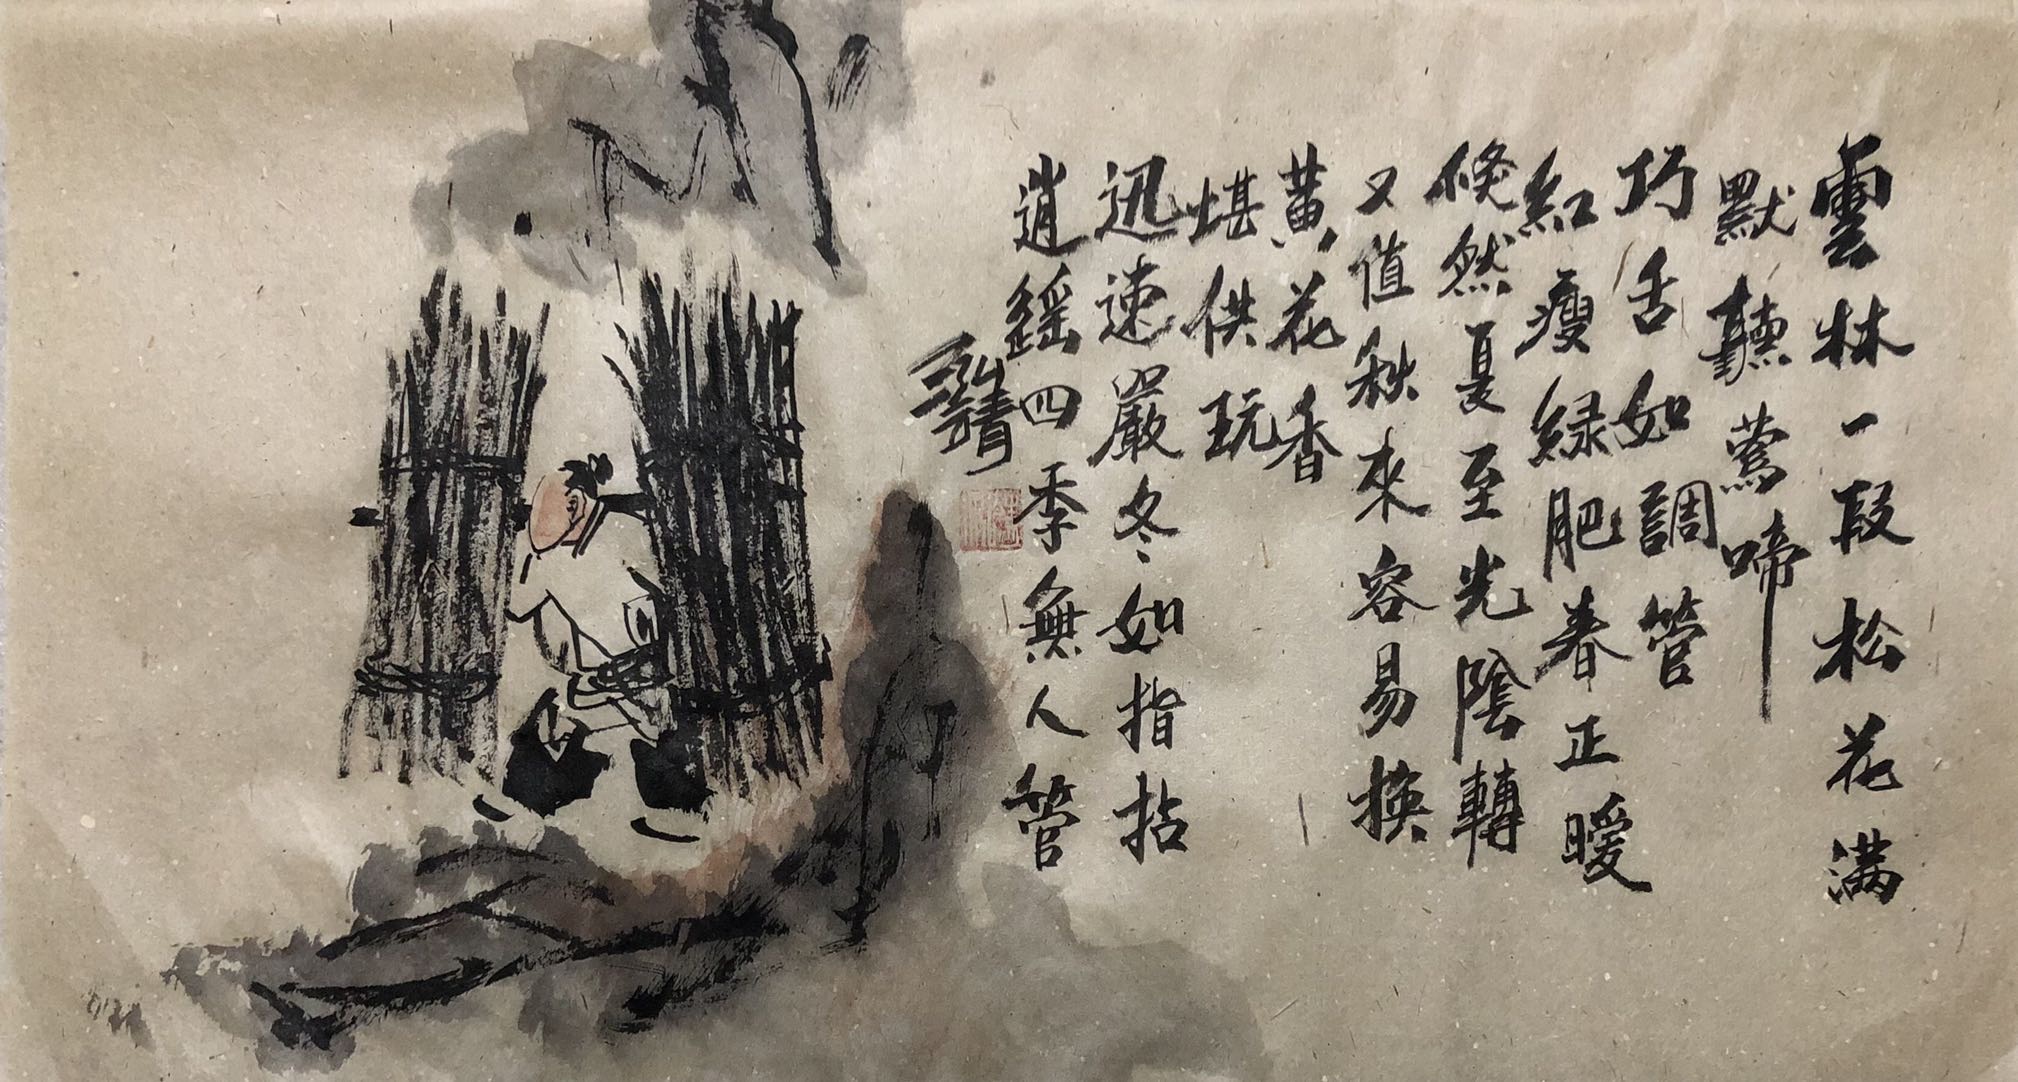 雲林一段松花滿
默聽鶯啼
巧舌如調管
紅瘦綠肥春正暖
倏然夏至光陰轉
又值秋來容易換
黃花香
堪供玩
迅速嚴冬如指拈
逍遙四季無人管